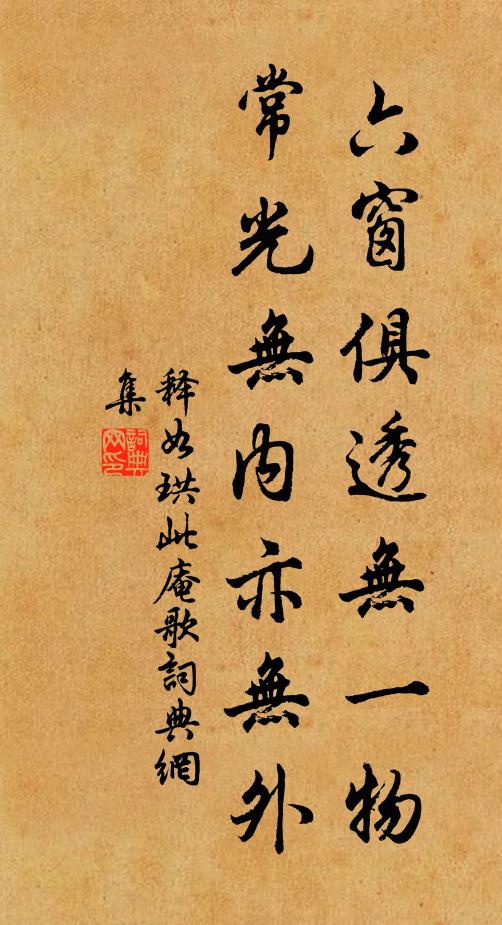 六窗俱透無一物
常光無內亦無外
释如珙此庵歌詞典網
集
詞典
网印